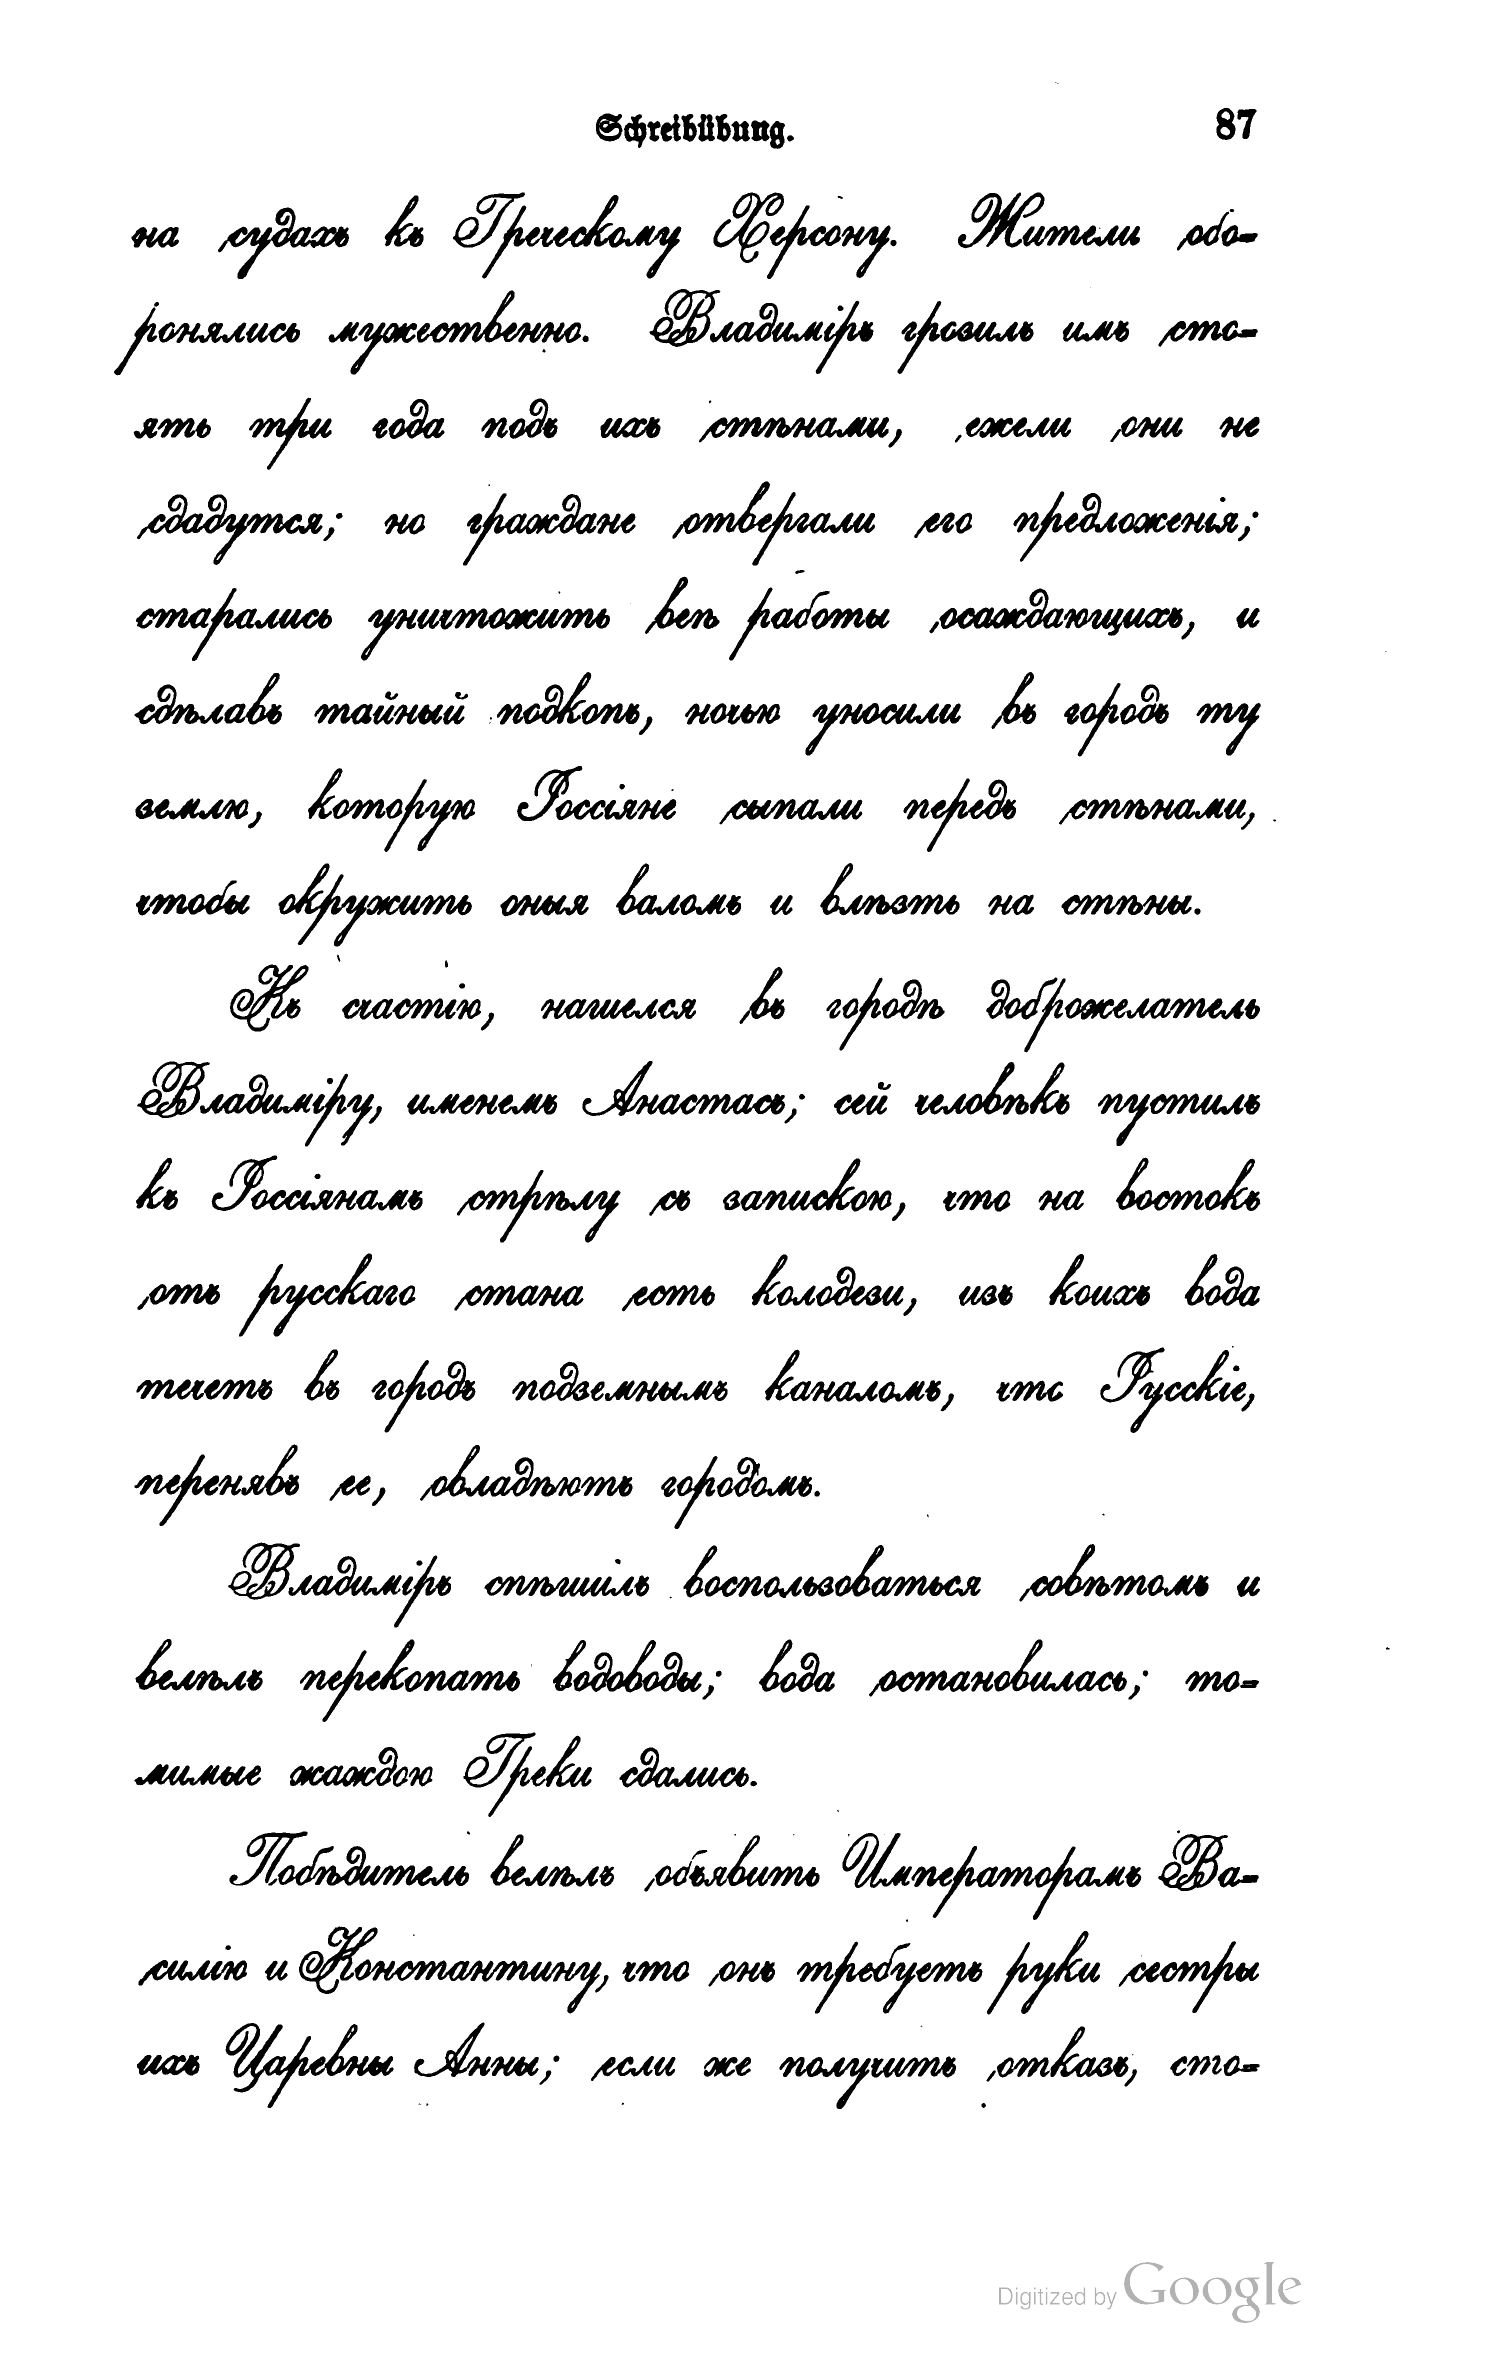 Schreibübung. 87
на судахъ къ Греческому Херсону. Жители обо-
ронялись мужественно. Владиміръ грозилъ имъ сто-
ять три года подъ ихъ стѣнами, ежели они не
сдадутся; но граждане отвергали его предложенія;
старались уничтожить всѣ работы осаждающихъ, и
сдѣлавъ тайный подкопъ, ночью уносили въ городъ ту
землю, которую Россіяне сыпали передъ стѣнами,
чтобы окружить оныя валомъ и влѣзть на стѣны.
Къ счастію, нашелся въ городѣ доброжелатель
Владиміру, именемъ Анастасъ; сей человѣкъ пустилъ
къ Россіянамъ стрѣлу съ запискою, что на востокъ
отъ русскаго стана есть колодези, изъ коихъ вода
течетъ въ городъ подземнымъ каналомъ, что Русскіе,
перенявъ ее, овладѣютъ городомъ.
Владиміръ спѣшилъ воспользоваться совѣтомъ и
велѣлъ перекопать водоводы; вода остановилась; то-
мимые жаждою Греки сдались.
Побѣдитель велѣлъ объявить Императорамъ Ва-
силію и Константину, что онъ требуетъ руки сестры
ихъ Царевны Анны; если же получитъ отказъ, сто-
Digitized by Google